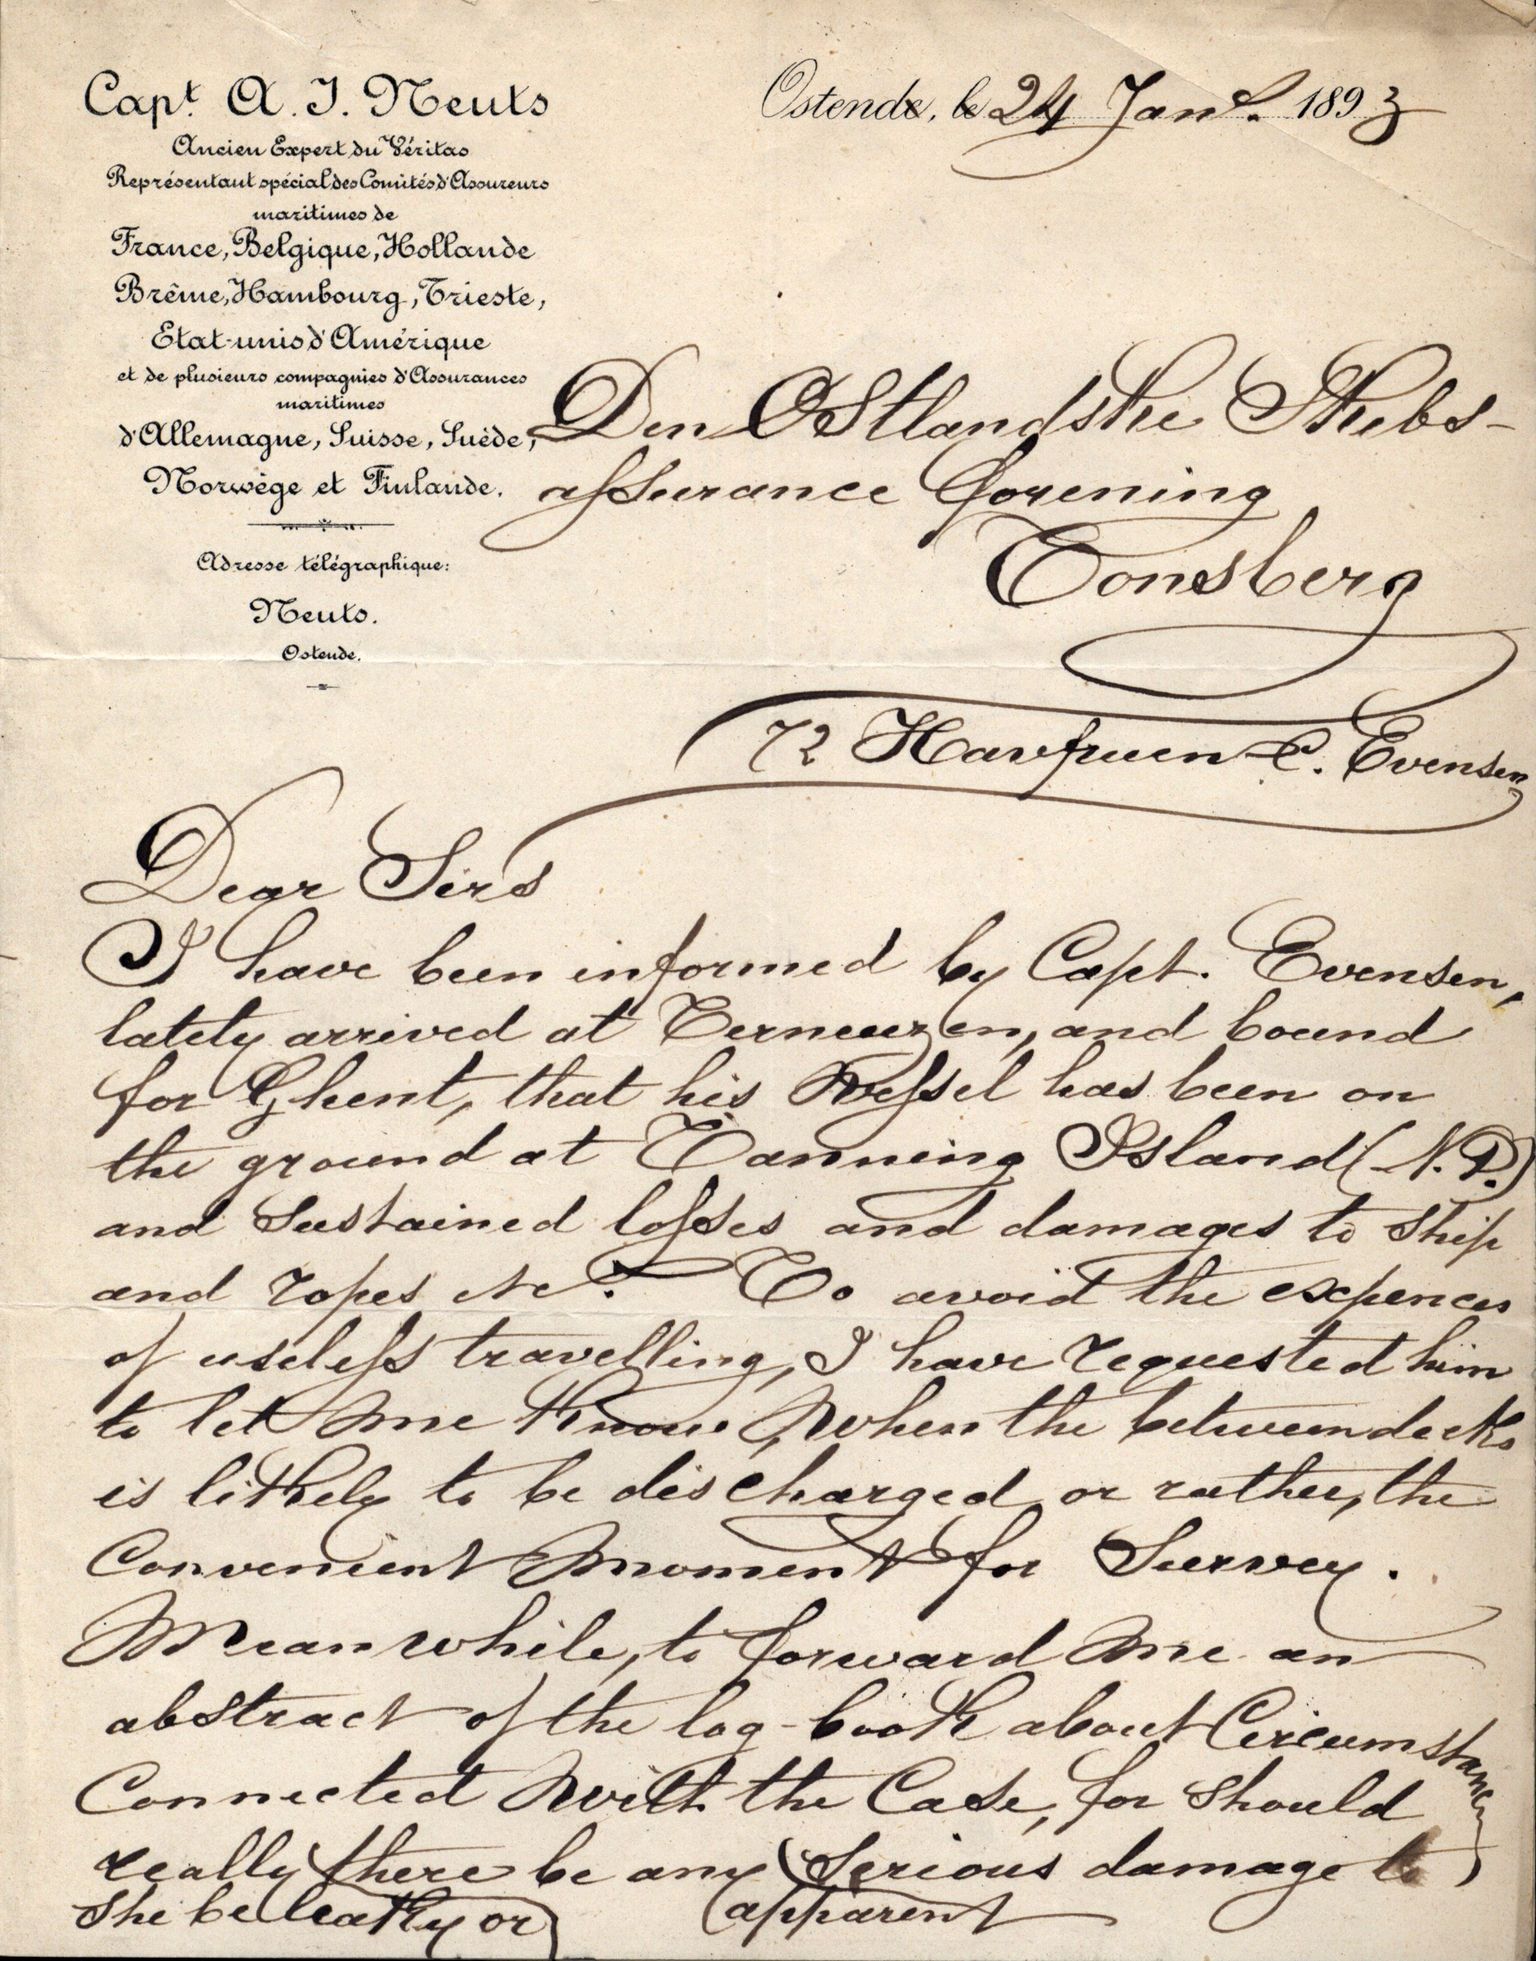 Capt. A. J. Neuts
Ancien Expert du Véritas
Représentant spécial des Comités d'Assureurs
maritimes de
France, Belgique, Hollande
Brême, Hambourg, Trieste,
Etat-unis d'Amérique
et de plusieurs compagnies d'Assurances
maritimes
d'Allemagne, Suisse, Suède,
Norwège et Finlande.
Adresse télégraphique:
Neuts.
Ostende.
Ostende, le 24 Jan. 1893
Den Ostlandske Skibs-
assurance Forening
Tonsberg
72 Havfruen C. Evensen
Dear Sirs
I have been informed by Capt. Evensen,
lately arrived at Terneuzen, and bound
for Ghent, that his Vessel has been on
the ground at Fanning Island (N.P.)
and Sustained losses and damages to Ship
and ropes etc. To avoid the expences
of useless travelling, I have requested him
to let me know, When the betweendecks
is likely to be discharged, or rather, the
Convenient moment for Survey.
Meanwhile, to forward me an
abstract of the log-book about Circumstances
Connected With the Case, for Should
really there be any Serious damage to
She be leaky or apparent